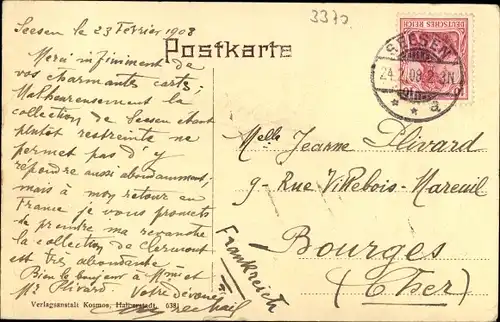 Seesen le 23 Fevrier 1908
3370
Postkarte
DEUTSCHES REICH
SEESEN
24.2.08. 2-3N
a
Merci infiniment de
vos charmantes cartes;
Malheureusement la
collection de Seesen étant
plutôt restreinte ne
permet pas d'y
répondre aussi abondamment,
mais à mon retour en
France je vous promets
de prendre ma revanche
la collection de Clermont
est très abondante
Bien le bonjour à Mme et
Mr Plivard. Votre dévoué
Melle Jeanne Plivard
9 - Rue Vikebois-Mareuil
Bourges
(Cher)
Frankreich
Verlagsanstalt Kosmos, Halberstadt. 6381